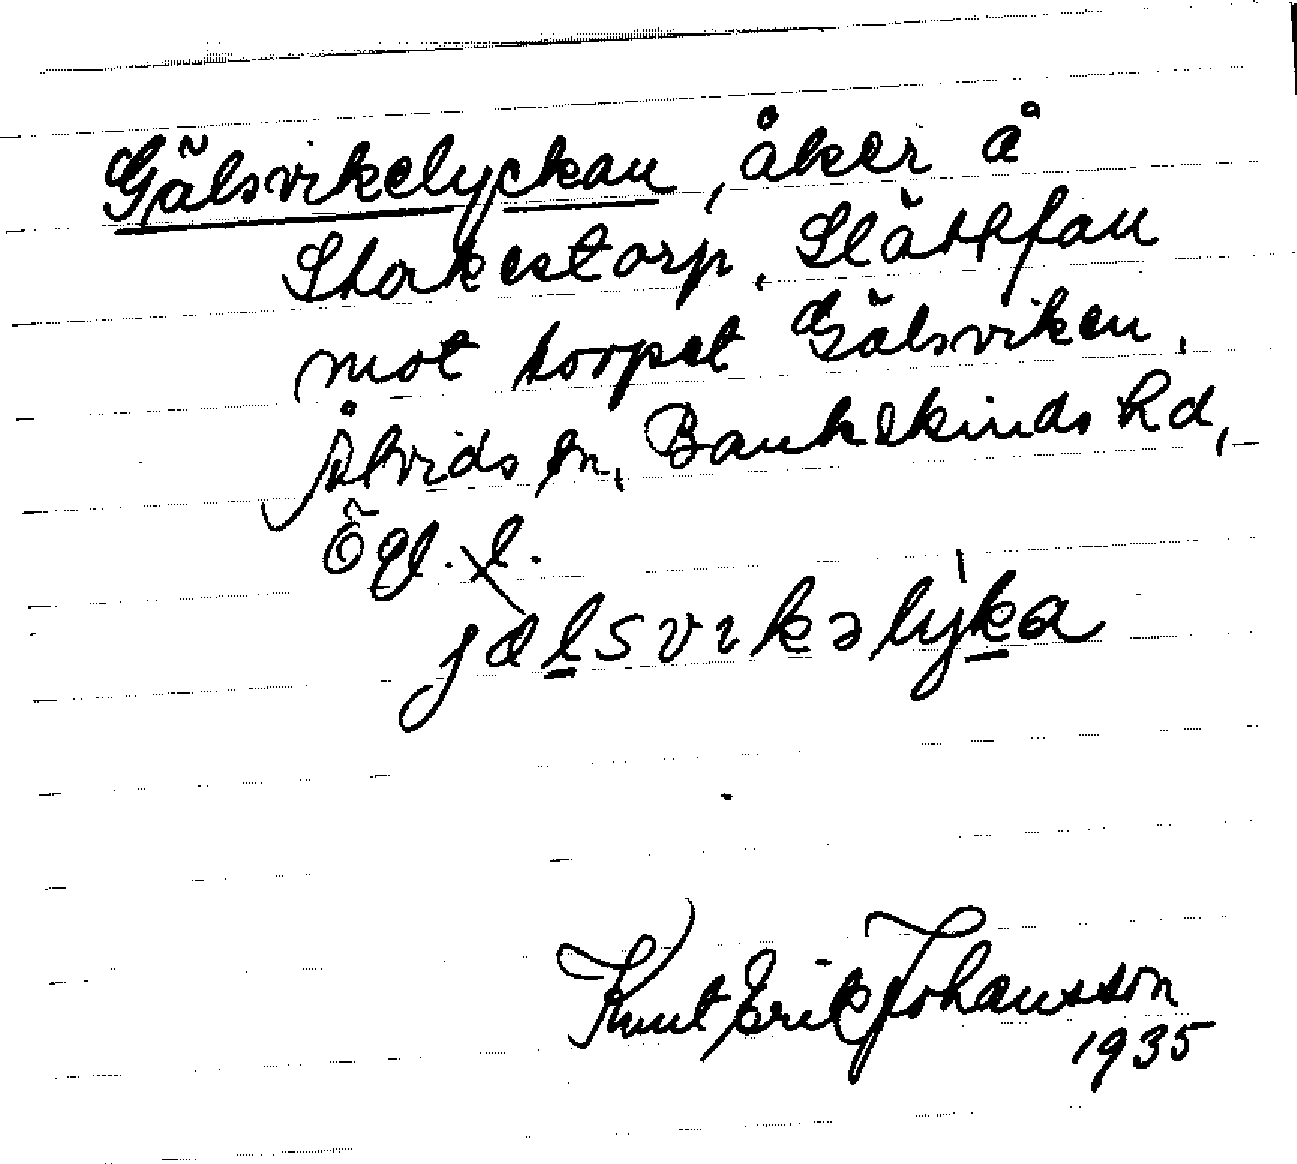 Gälsvikelyckan, åker å
Stakestorp, Slättefan
mot torpet Gälsviken,
Åtvids sn, Bankekinds hd,
Ögl. l.
jälsvikəlyka
Knut Erik Johansson
1935